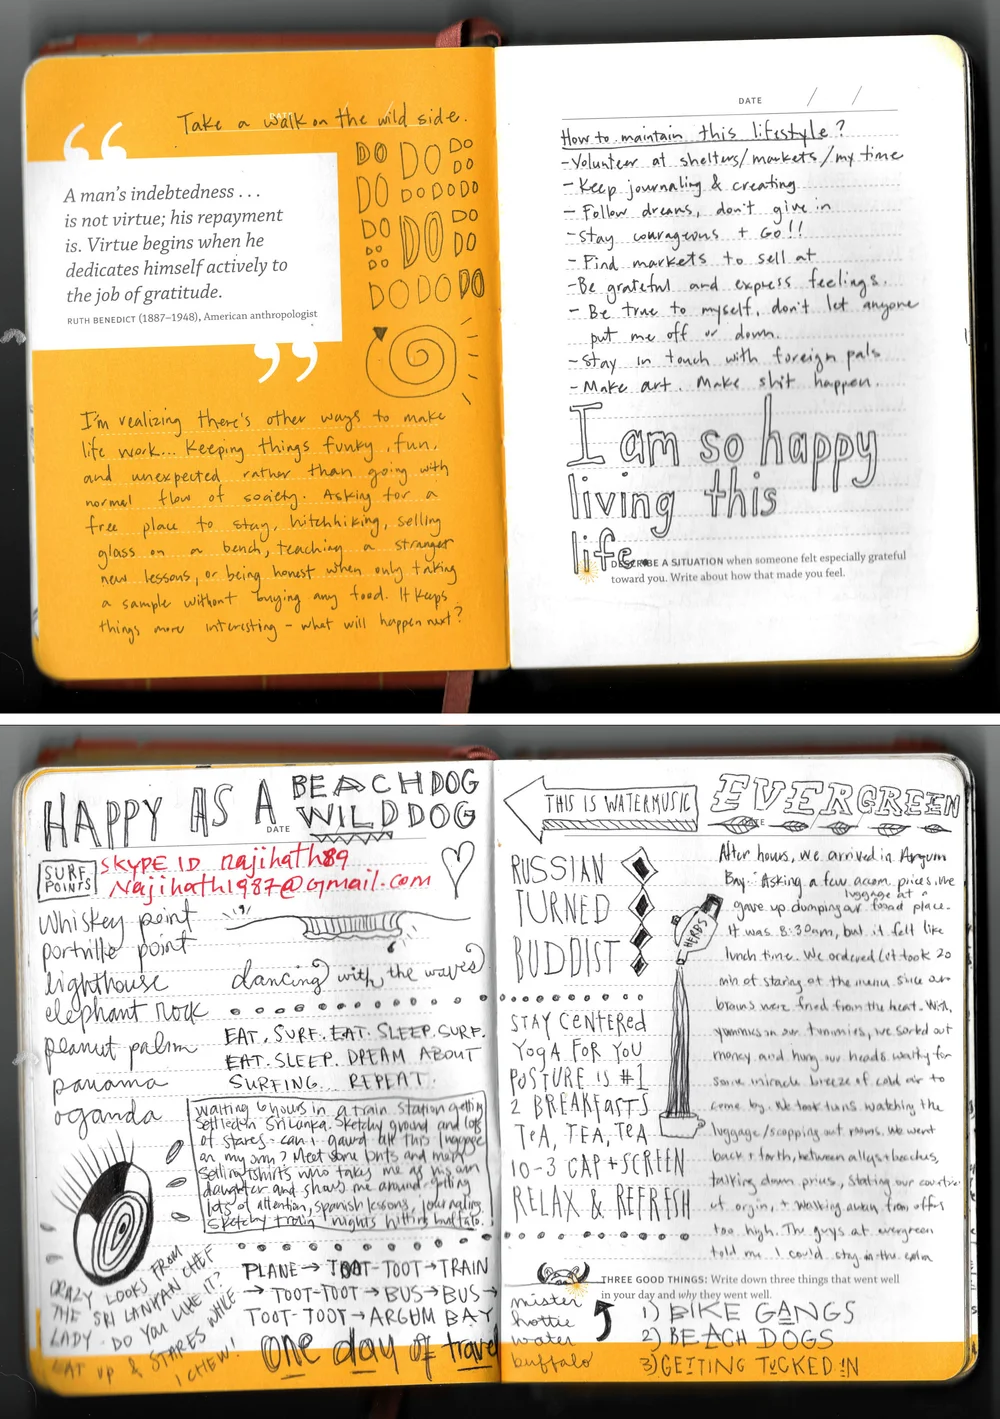 Take a walk on the wild side.
DATE
“
A man's indebtedness . . .
is not virtue; his repayment
is. Virtue begins when he
dedicates himself actively to
the job of gratitude.
RUTH BENEDICT (1887–1948), American anthropologist
”
DO DO DO
DO
DO DO DO DO DO
DO DO DO
DO DO
DO
DO DO DO
I'm realizing there's other ways to make
life work... Keeping things funky, fun,
and unexpected rather than going with
normal flow of society. Asking for a
free place to stay, hitchhiking, selling
glass on a bench, teaching a stranger
new lessons, or being honest when only taking
a sample without buying any food. It keeps
things more interesting - what will happen next?
DATE / /
How to maintain this lifestyle?
- Volunteer at shelters/markets/my time
- Keep journaling & creating
- Follow dreams, don't give in
- Stay courageous + Go!!
- Find markets to sell at
- Be grateful and express feelings.
- Be true to myself, don't let anyone
put me off or down.
- Stay in touch with foreign pals
- Make art. Make shit happen.
I am so happy
living this
life.
DESCRIBE A SITUATION when someone felt especially grateful
toward you. Write about how that made you feel.
HAPPY AS A BEACHDOG
WILDDOG
DATE
SURF POINTS
SKYPE ID najihath89
Najihath1987@gmail.com
Whiskey point
portville point
lighthouse
elephant rock
peanut palm
panama
oganda
dancing with the waves
EAT. SURF. EAT. SLEEP. SURF.
EAT. SLEEP. DREAM ABOUT
SURFING. REPEAT.
waiting 6 hours in a train station getting
settled in Sri Lanka. Sketchy ground and lots
of stares - can i gaurd all this luggage
on my own? Meet some brits and
selling tshirts who takes me as his own
daughter and shows me around. Getting
lots of attention, spanish lessons, journaling.
Sketchy train nights hitting buffalo.
PLANE → TOOT-TOOT → TRAIN
→ TOOT-TOOT → BUS → BUS →
TOOT-TOOT → ARGUM BAY
One day of travel
CRAZY LOOKS FROM
THE SRI LANKAN CHEF
LADY. DO YOU LIKE IT?
EAT UP & STARES WHILE
I CHEW!
THIS IS WATERMUSIC
EVERGREEN
DATE
RUSSIAN
TURNED
BUDDIST
HERBS
STAY CENTERED
YOGA FOR YOU
POSTURE IS #1
2 BREAKFASTS
TEA, TEA, TEA
10-3 CAP + SCREEN
RELAX & REFRESH
After hours, we arrived in Argum
Bay. Asking a few accom. prices, we
gave up dumping our luggage at a food place.
It was 8:30am, but it felt like
lunch time. We ordered (it took 20
min of staring at the menu since our
brains were fried from the heat. With
yummies in our tummies, we sorted out
money and hung our heads waiting for
some miracle breeze of cold air to
come by. We took turns watching the
luggage/scopping out rooms. We went
back + forth, between alleys + beaches,
talking down prices, stating our countries
of orgin, + walking away from offers
too high. The guys at evergreen
told me I could stay in the
THREE GOOD THINGS: Write down three things that went well
in your day and why they went well.
mister
hottie
water
buffalo
1) BIKE GANGS
2) BEACH DOGS
3) GETTING TUCKED IN